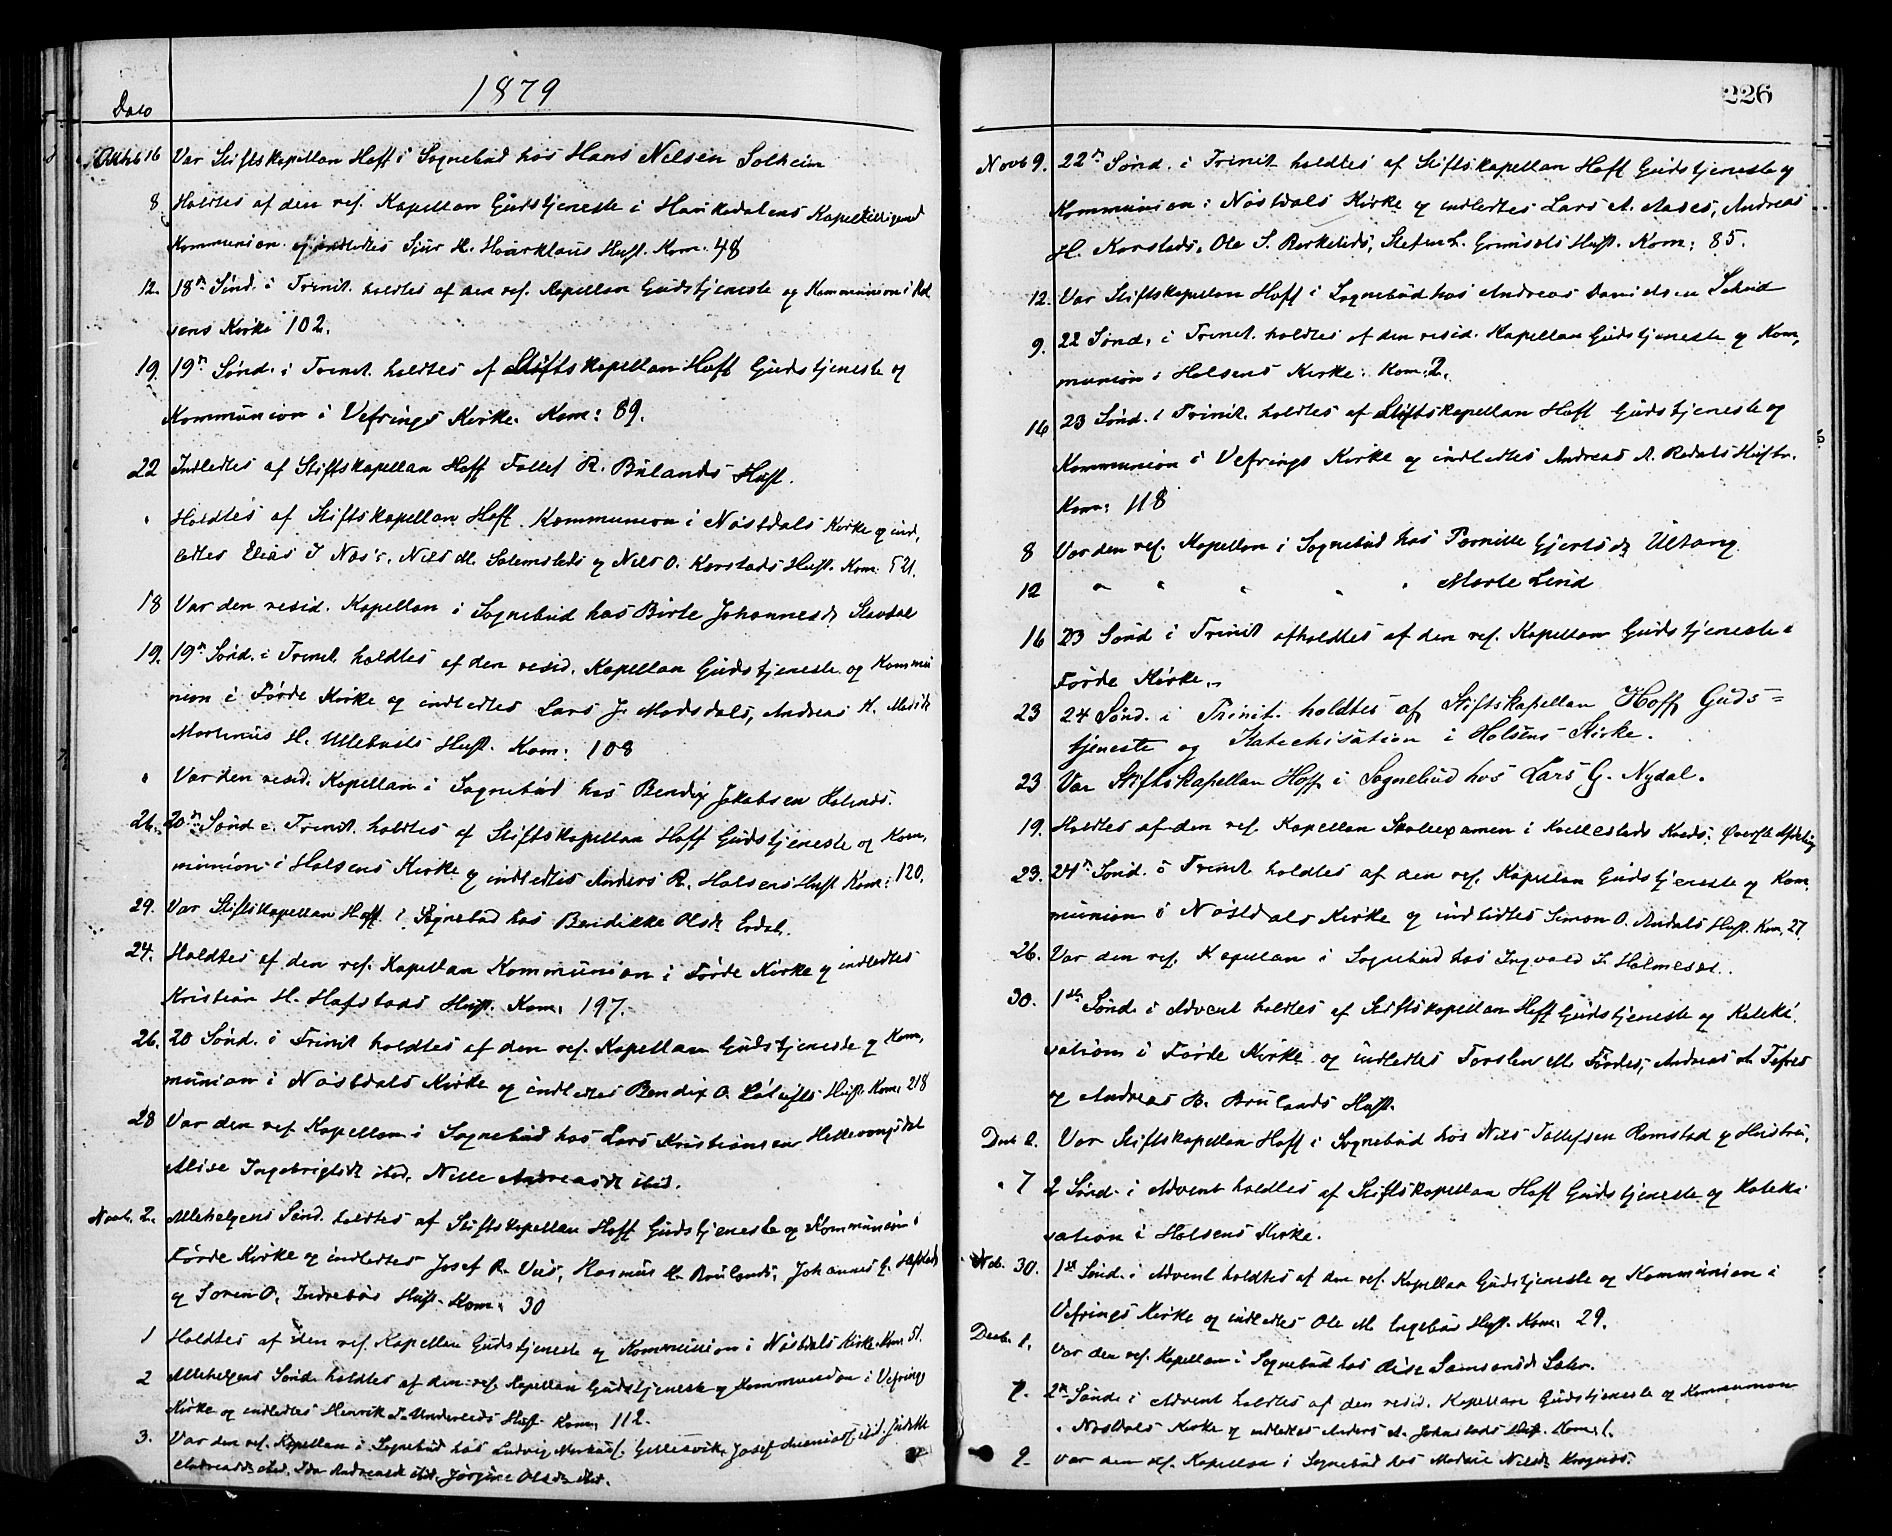 1879
Dato
Oktbr 16 Var Stiftskapellan Hoff i Sognebud hos Hans Nilsen Solheim
8 Holdtes af den res. Kapellan Gudstjeneste i Haukedalens Kapel
Kommunion og indledtes Sjur H. Hust. Kom. 48
12. 18n Sønd. i Trinit. holdtes af den res. Kapellan Gudstjeneste og Kommunion i Hol
sens Kirke 102.
19. 19n Sønd. i Trinit. holdtes af Stiftskapellan Hoff Gudstjeneste og
Kommunion i Vefrings Kirke. Kom: 89.
22 Indledtes af Stiftskapellan Hoff Tollef R. Brulands Hust.
" Holdtes af Stiftskapellan Hoff Kommunion i Nøstdals Kirke og ind,
ledtes Elias J Nos's, Nils M. og Nils O. Karstads Hust. Kom:
18 Var den resid. Kapellan i Sognebud hos Birte Johannesdr
19. 19n Sønd. i Trinit. holdtes af den resid. Kapellan Gudstjeneste og Kommu
nion i Førde Kirke og indledtes Lars J. Modsdals, Andreas H.
Martinus H. Ullebusts Hust. Kom: 108
" Var den resid. Kapellan i Sognebud hos Bendix Jakobsen
26. 20n Sønd i Trinit. holdtes af Stiftskapellan Hoff Gudstjeneste og Kom,
munion i Holsens Kirke og indledtes Anders R. Holsens Hust Kom: 120.
29. Var Stiftskapellan Hoff i Sognebud hos Bendikke Olsdr Erdal.
24. Holdtes af den res. Kapellan Kommunion i Førde Kirke og indledtes
Kristian H. Hafstads Hust. Kom: 197.
26. 20 Sønd. i Trinit holdtes af den res. Kapellan Gudstjeneste og Kom,
munion i Nøstdals Kirke og indledtes Bendix O. Hust. Kom: 218
28 Var den res Kapellan i Sognebud hos Lars Kristiansen
Alise Ingebrigtsdr ibid. Nille Andreasdr ibid.
Novb. 2. Allehelgens Sønd. holdtes af Stiftskapellan Hoff Gudstjeneste og Kommunion i
Førde Kirke og indledtes Josef R. Vies, Rasmus A. Brulands, Johannes G. Hafstads
og Søren O. Indrebøs Hust. Kom: 30
1 Holdtes af den res. Kapellan Gudstjeneste og Kommunion i Nøstdals Kirke. Kom 51.
2 Allehelgens Sønd. holdtes af den res. Kapellan Gudstjeneste og Kommunion i Vefrings
Kirke og indledtes Henrik J. Underlids Hust. Kom: 112.
3. Var den res. Kapellan i Sognebud hos Ludvig Markusf. Gellesvik, Josef ibid,
Andreasdr ibid, Ida Andreasdr ibid. Jørgine Olsdr ibid.
226
Novb 9. 22n Sønd. i Trinit holdtes af Stiftskapellan Hoff Gudstjeneste og
Kommunion i Nøstdals Kirke og indledtes Lars A. Aases, Andreas
H. Karstads, Ole S. Birkelids, Stefen L. Grimsets Hust. Kom: 85.
12. Var Stiftskapellan Hoff i Sognebud hos Andreas Davidsen
9. 22 Sønd. i Trinit. holdtes af den resid. Kapellan Gudstjeneste og Kom,
munion i Holsens Kirke. Kom. 2.
16 23 Sønd. i Trinit. holdtes af Stiftskapellan Hoff Gudstjeneste og
Kommunion i Vefrings Kirke og indledtes Andreas A. Redals Hustr.
Kom: 118
8 Var den res. Kapellan i Sognebud hos Pernille Gjertsdr Ullang
12 " " " " " Marte Lind
16 23 Sønd i Trinit afholdtes af den res. Kapellan Gudstjeneste i
Førde Kirke.
23 24 Sønd. i Trinit. holdtes af Stiftskapellan Hoff Guds=
tjeneste og Katechisation i Holsens Kirke.
23 Var Stiftskapellan Hoff i Sognebud hos Lars G. Nydal.
19. Holdtes af den res. Kapellan Skoleexamen i Kvellestads Kreds: Øverste Afdeling
23. 24n Sønd. i Trinit holdtes af den res. Kapellan Gudstjeneste og Kom.
munion i Nøstdals Kirke og indledtes Simon O. Andals Hust. Kom. 27.
26. Var den res. Kapellan i Sognebud hos Ingvald S. Holmeset.
30. 1ste Sønd. i Advent holdtes af Stiftskapellan Hoff Gudstjeneste og Kateki,
sation i Førde Kirke og indledtes Torsten M. Førdes, Andreas A Tefres
og Andreas B. Brulands Hust.
Decb 2. Var Stiftskapellan Hoff i Sognebud hos Nils Tollefsen Ramstad og Hustru,
" 7 2 Sønd. i Advent holdtes af Stiftskapellan Hoff Gudstjeneste og Kateki
sation i Holsens Kirke.
Nob. 30. 1st Sønd. i Advent holdtes af den res. Kapellan Gudstjeneste og Kommunion i
Vefrings Kirke og indledtes Ole M. Engebøs Hust. Kom: 29.
Decb. 1. Var den res. Kapellan i Sognebud hos Samsonsdr
7. 2n Sønd. i Advent holdtes af den resid. Kapellan Gudstjeneste og Kommunion
i Nøstdals Kirke og indledtes Anders A. Hust. Kom: 1.
9. Var den res. Kapellan i Sognebud hos Nilsdr